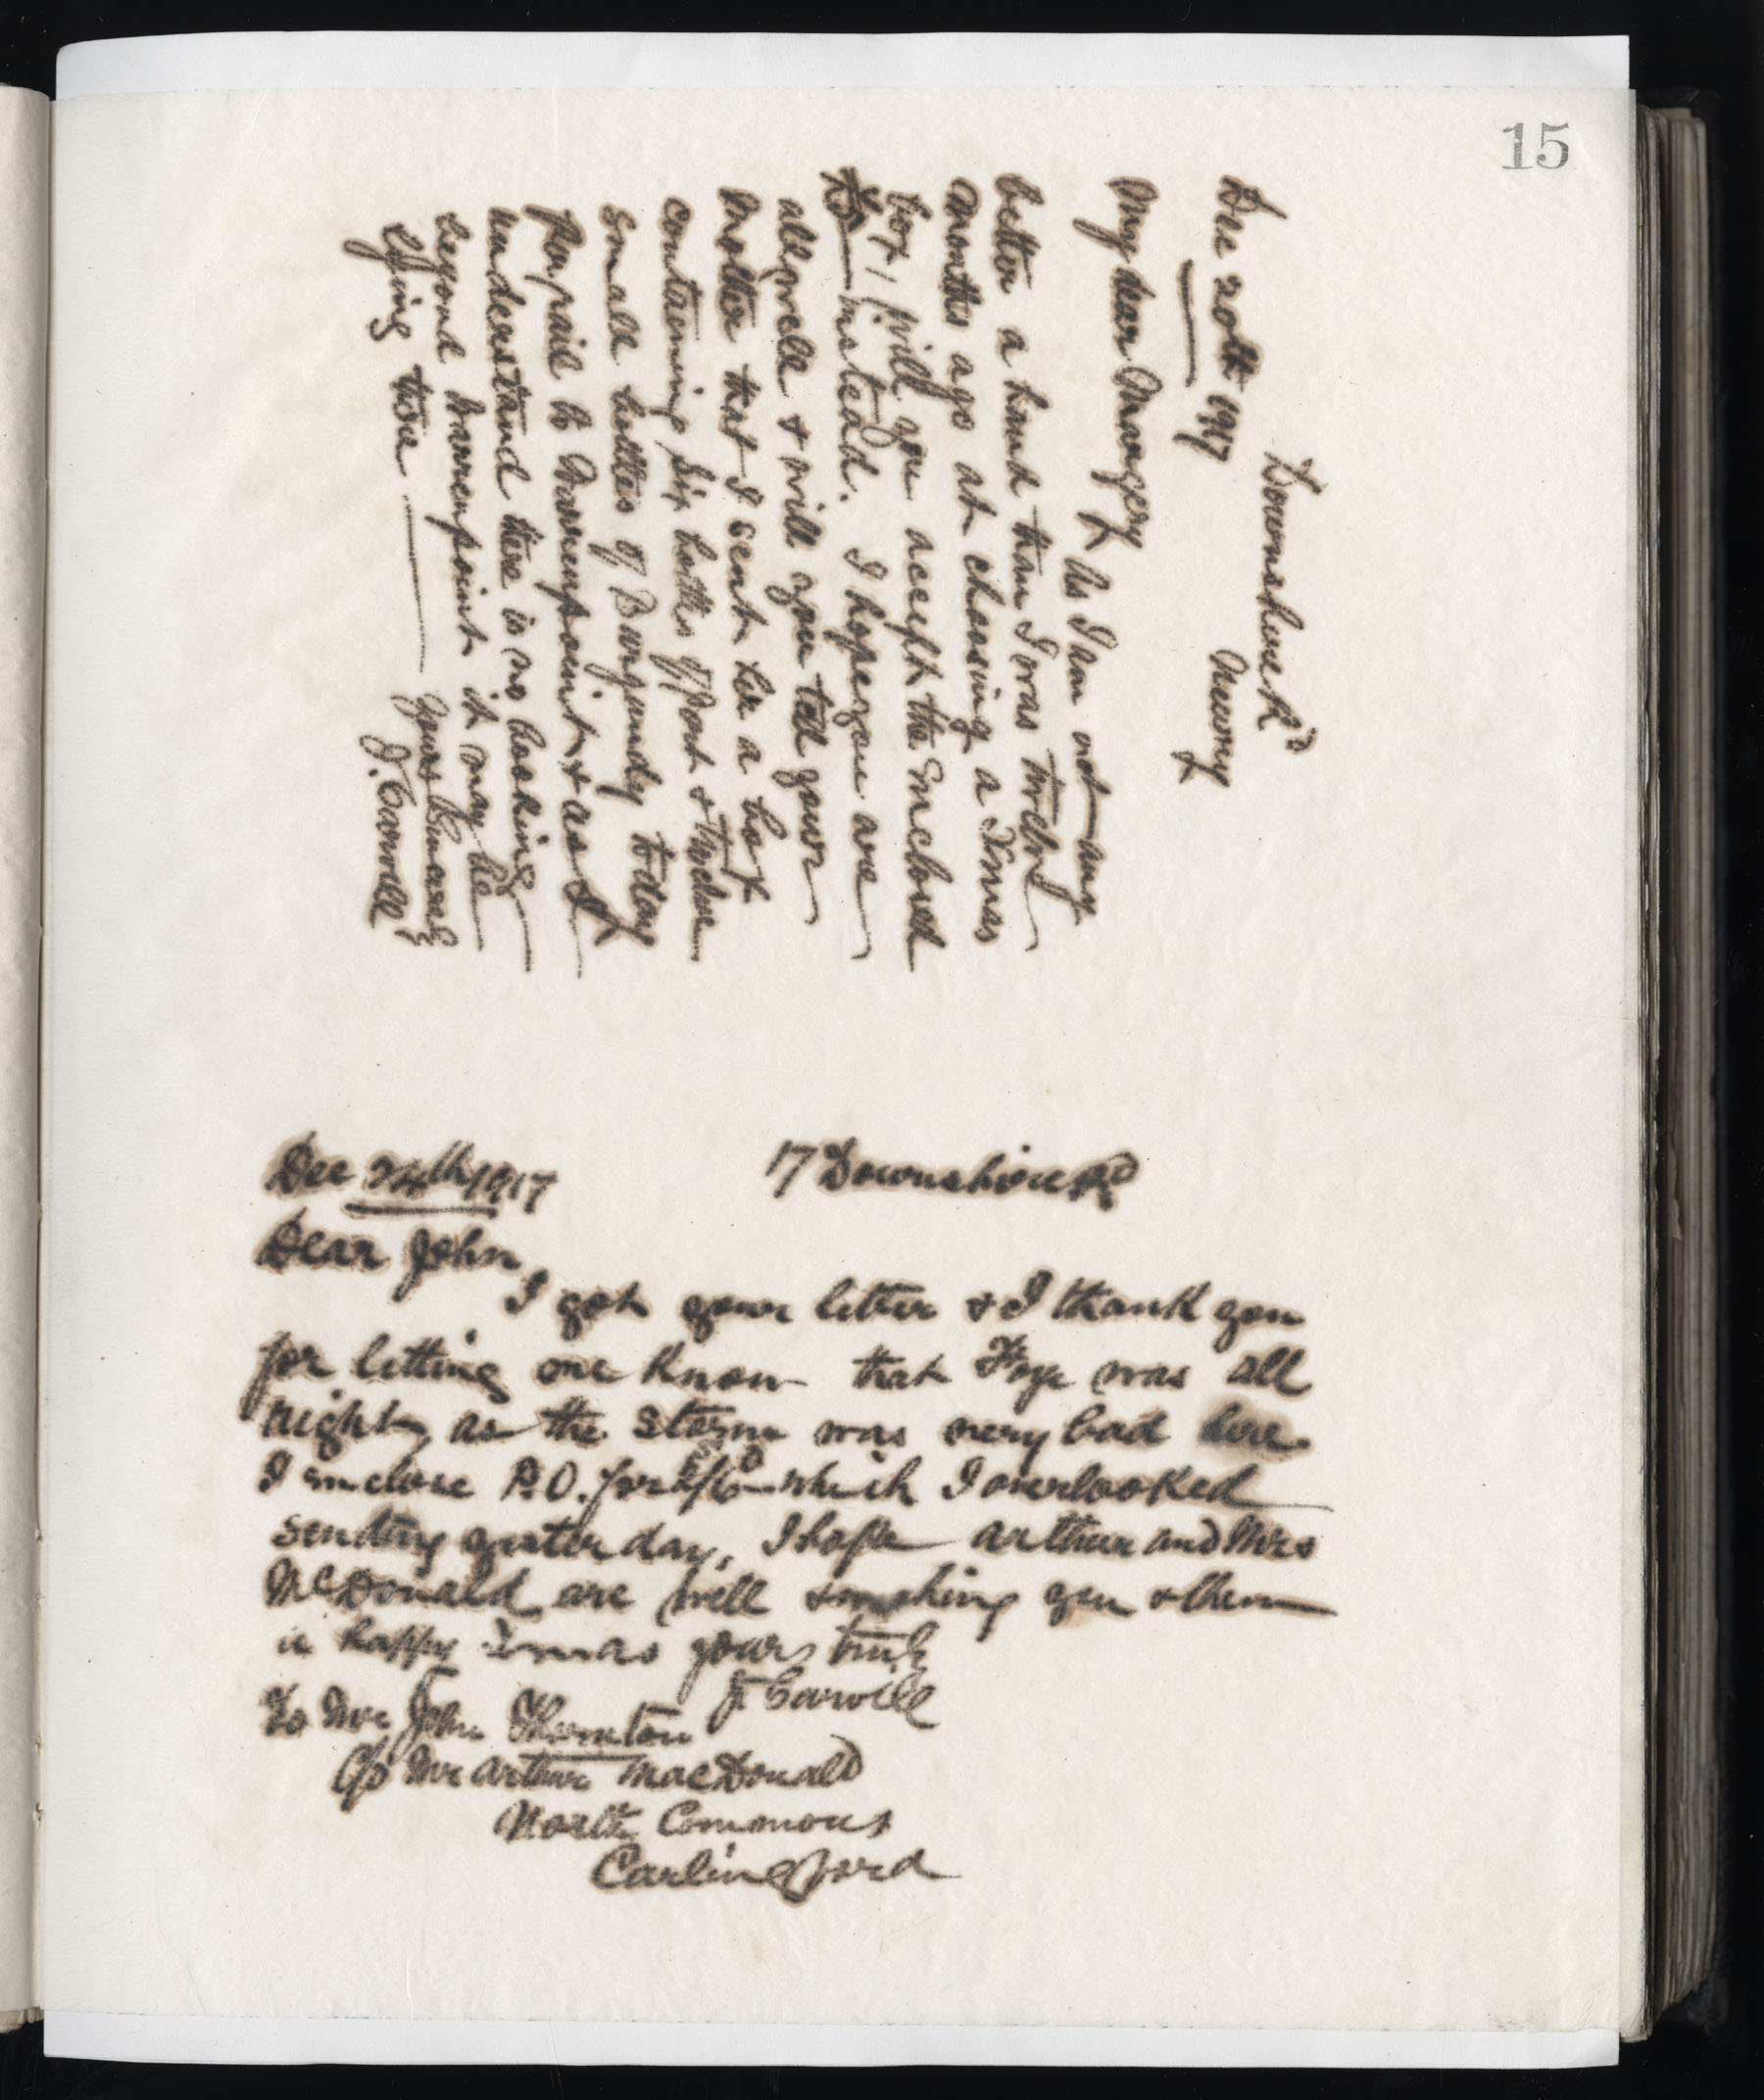 15
Downshire Rd
Newry
Dec 20th 1917
My dear Margery
As I am not any
better a hand than I was twelve
months ago at choosing a Xmas
box, will you accept the Enclosed
instead. I hope you are
all well & will you tell your
Mother that I sent her a box
containing Six bottles of Port & twelve
Small bottles of Burgundy today
per rail to Warrenpoint & as I
understand there is no booking
beyond Warrenpoint it may be
lying there — yours Sincerely
J. Carvill
Dec 24th 1917 17 Downshire Rd
Dear John,
I got your letter & I thank you
for letting me know that Faye was all
right, as the storm was very bad here
I enclose P.O. for which I overlooked
sending yesterday, I hope Arthur and Mrs
McDonald are well & wishing you & them
a happy Xmas yours truly
J. Carvill
To Mr John Thornton
C/o Mr Arthur MacDonald
North Commons
Carlingford